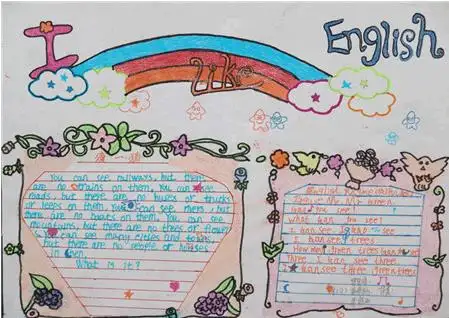 I
Like
English
猜一猜
You can see railways, but there
are no trains on them. You can see
roads, but there are no buses or trucks
on them. You can see
there are no boats on them. You can see
mountains, but there are no trees or flowers
can see many cities and towns,
but there are no people or houses
in
What is it?
English
Mr. Mr. Green
Can you see?
What can you see?
I can see I can see
I can see trees
How many green trees can see
Three, I can see three
I can see three green trees